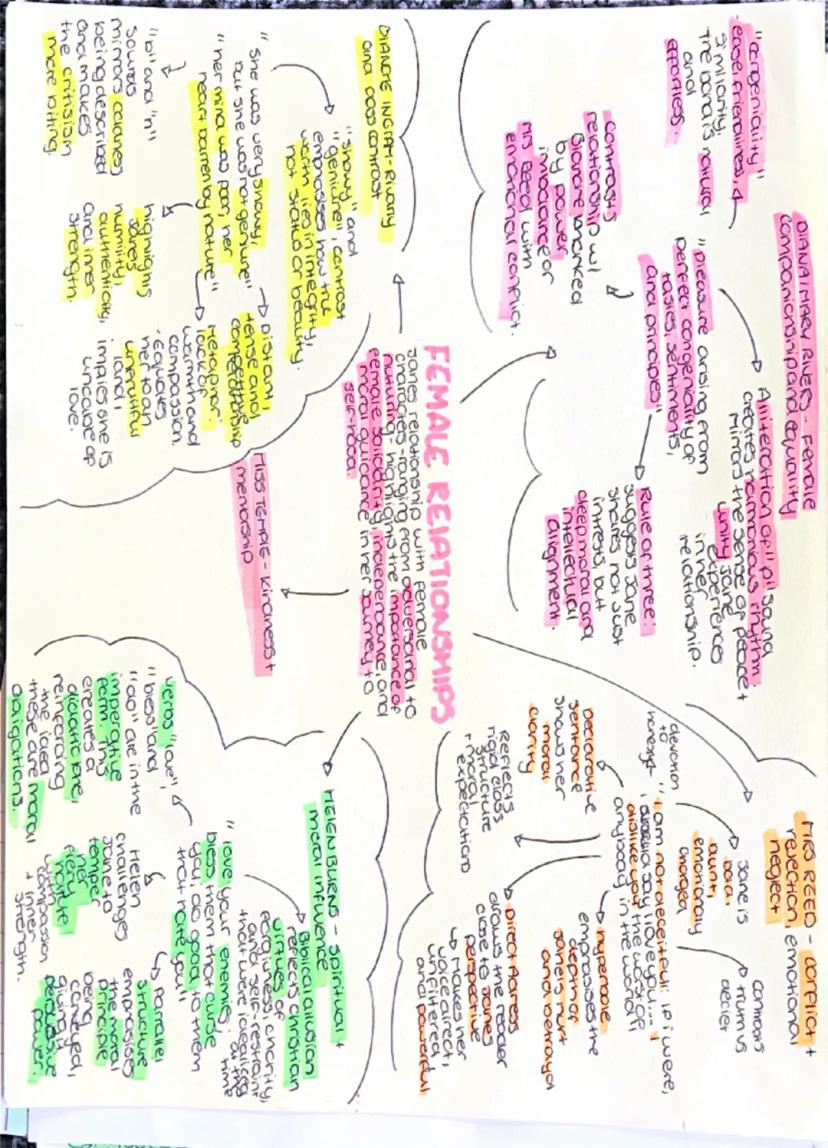 FEMALE RElATIONSHIPS
Janes relationship with female
characters - ranging from adversarial to
nuturing - highlights the importance of
female solidarity, independance, and
moral guidance in her journey to
self-hood.
DIANA/MARY RIVERS - female
companionship and equality
Alliteration of "p" sound
creates harmonious rhythm.
Mirrors the sense of peace +
unity Jane
experiences
in her
relationship.
"pleasure arising from
perfect congeniality of
tastes, sentiments,
and principles"
"congeniality"
ease, friendliness,
similiarity,
The bond is natural
and
effortless.
Rule of three:
suggests Jane
shares not just
intrests, but
deep moral and
intellectual
alignment.
contrasts
relationship w/
Blanche marked
by power
imbalance or
Mrs Reed with
emotional conflict.
MRS REED - conflict +
rejection, emotional
neglect
Jane is
bold,
blunt,
emotionaly
charged
contrasts
truth vs
deceit
devotion
to
honesty
"I am not deceitful: if i were,
i should say I love you.... I
dislike you the worst of
anybody in the world"
Declarative
sentance
shows her
moral
clarity
Hyperbole
emphasises the
depth of
Janes hurt
and betrayal
Reflects
rigid class
structure
+ moral
expectations
Direct Adress
draws the reader
close to Janes
perspective
↳ Makes her
voice direct,
unfiltered,
and powerful
BLANCHE INGRAM - Rivalry
and class contrast
"showy" and
"genuine", contrast
emphasises how true
worth lies in integrity,
not status or beauty.
"she was very showy,
but she was not genuine"
"her mind was poor, her
heart barren by nature"
Distant,
tense and
competitive
relationship
metaphor:
lack of
warmth and
compassion.
Equates
her to an
unfruitful
land,
implies she is
uncapable of
love.
"b" and "n"
sounds
mirrors coldness
being described
and makes
the critisism
more biting.
highlights
Janes
humility,
authenticity,
and inner
strength.
MISS TEMPLE - kindness +
mentorship
HELEN BURNS - spiritual +
moral influence
Biblical allusion
reflects christian
virtues of
forgiveness, charity,
and self-restraint
that were idealised
at the
time
"love your enemies;
bless them that curse
you; do good to them
that hate you"
verbs "love",
"bless" and
"do" are in the
imperative
form. This
creates a
didactic tone,
reinforcing
the idea
these are moral
obligations.
Helen
challenges
Jane to
temper
her
fiery
nature
with
compassion
+ inner
strength.
Parallel
structure
emphasises
the moral
principle
being
conveyed,
giving it
persuasive
power.